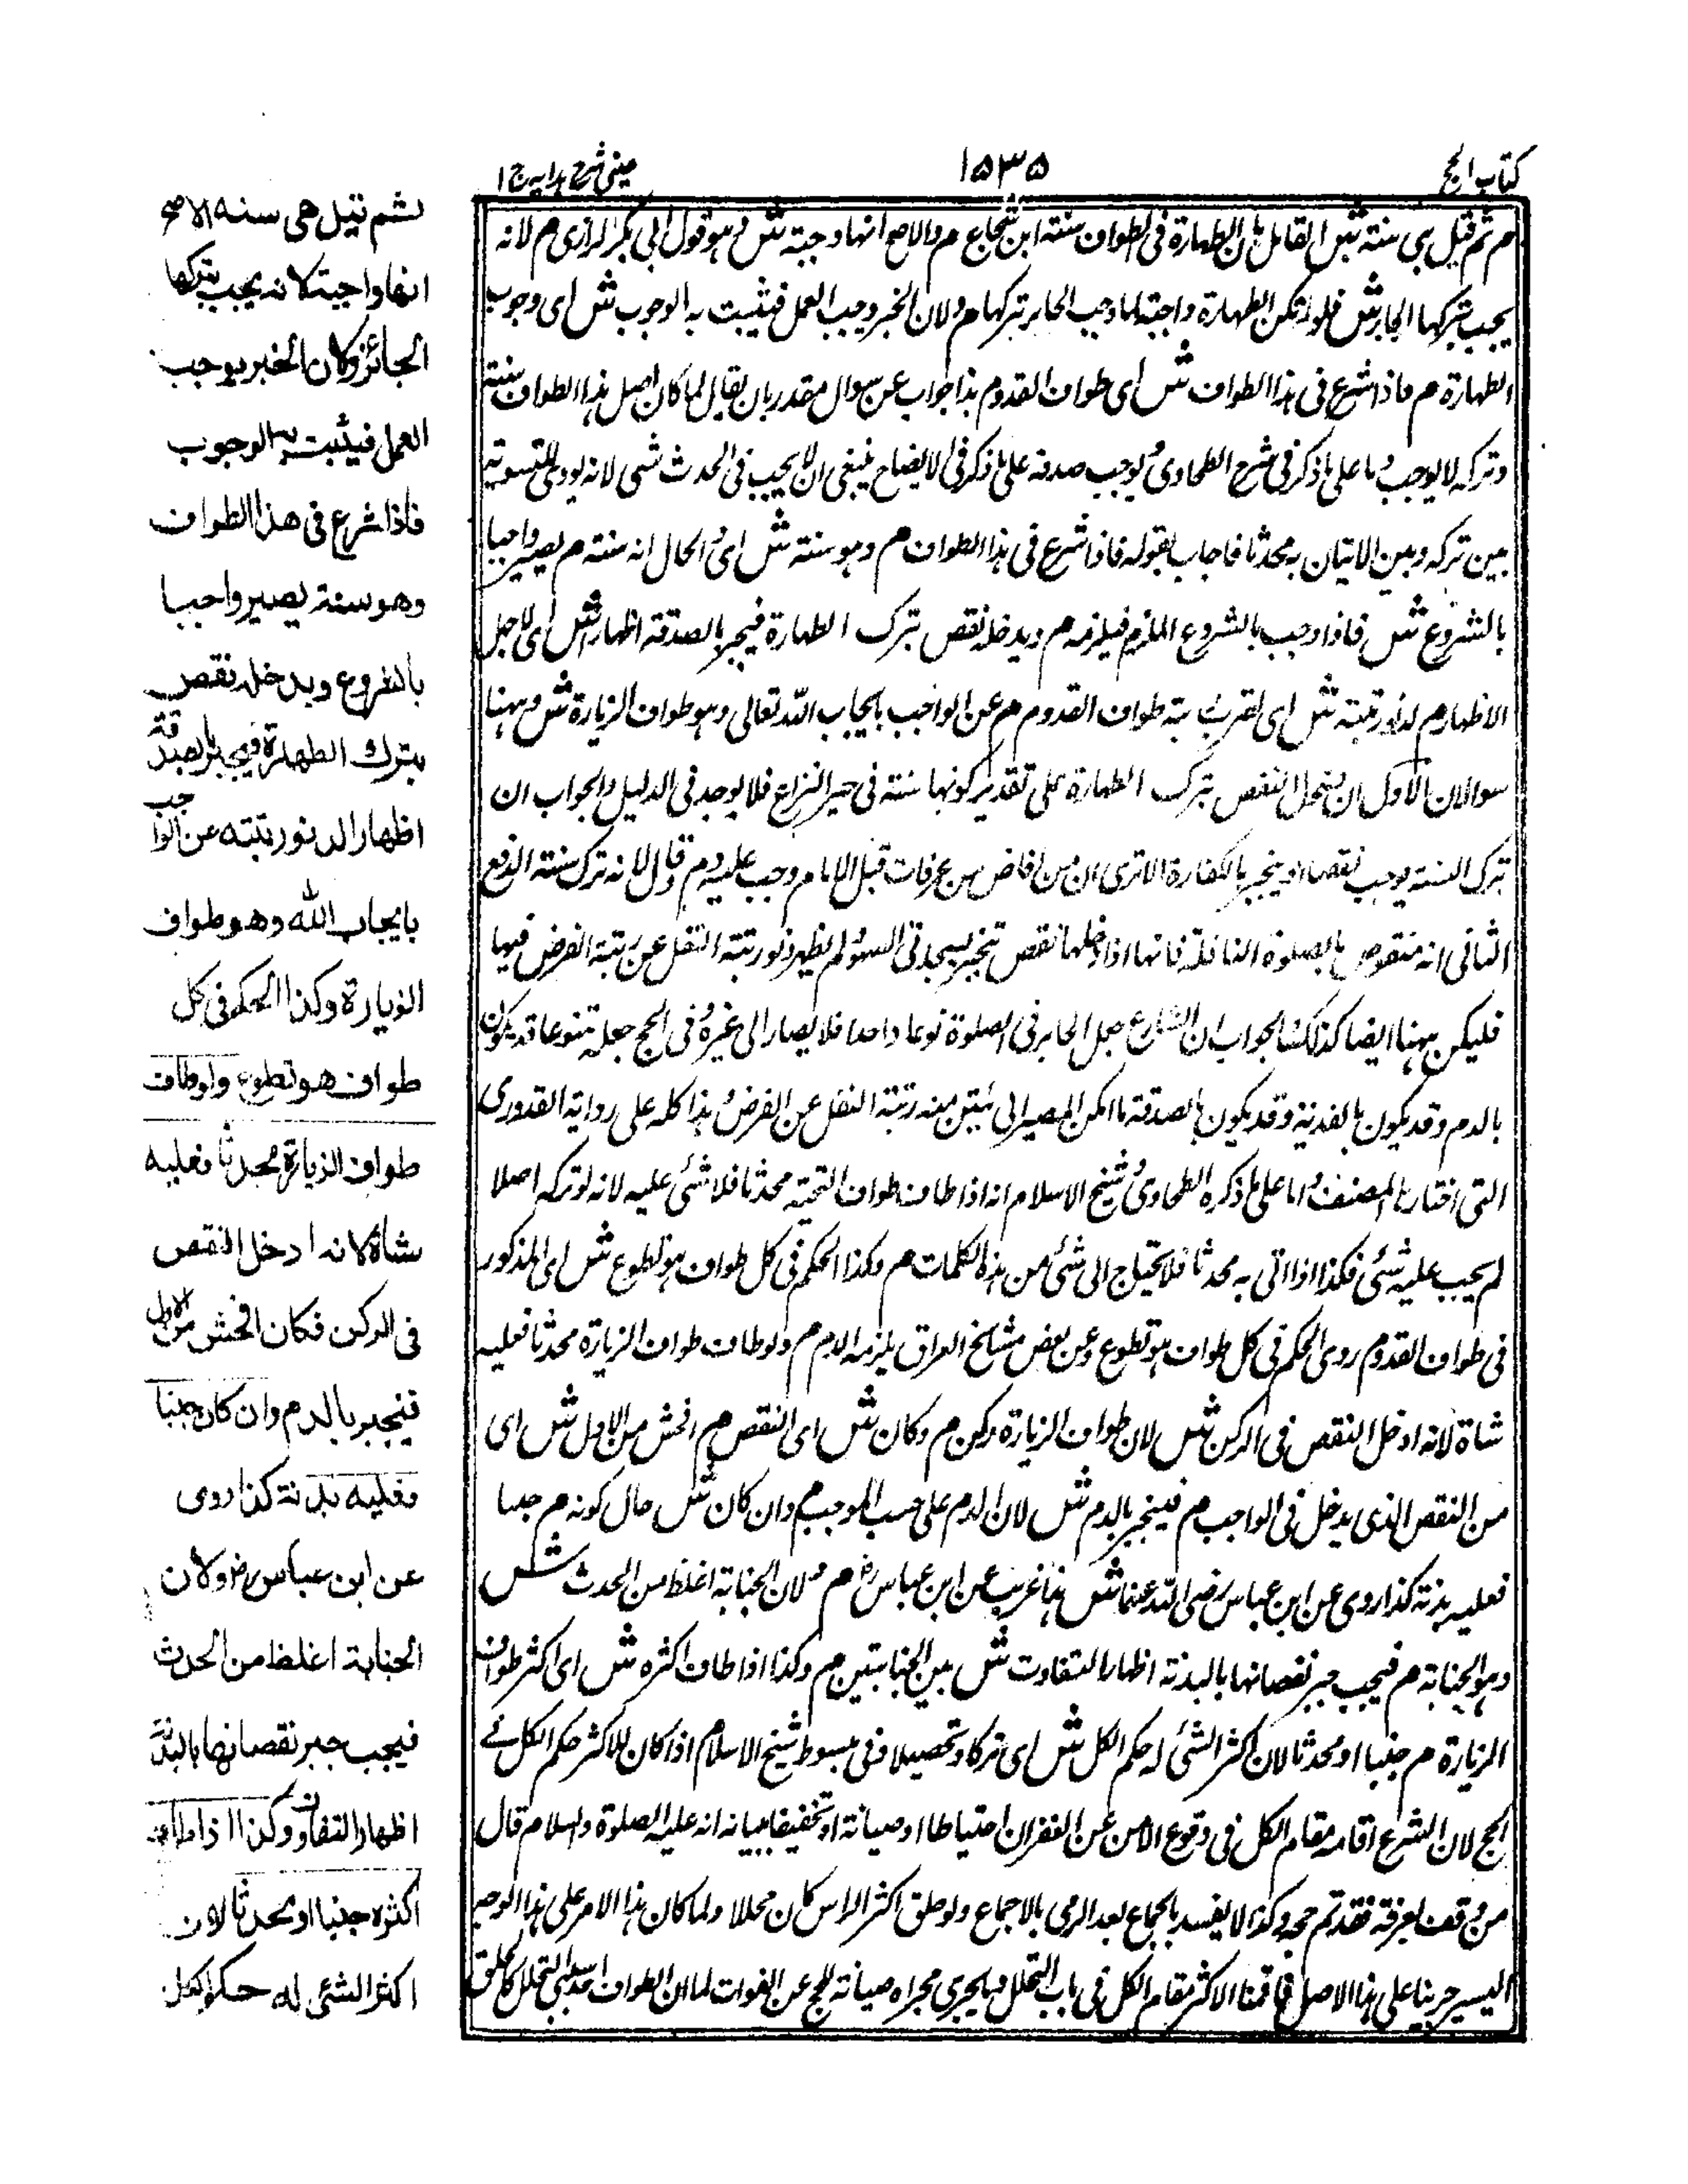 كتاب الحج
١٥٣٥
عيني شرح هدايه ج ١
م ثم قيل هي سنة ش القائل بان الطهارة في الطواف سنة ابن شجاع م والاصح انها واجبة ش وهو قول ابي بكر الرازي م لانه
يجب بتركها الجابر ش فلو لم تكن الطهارة واجبة لما وجب الجابر بتركها م ولان الخبر يوجب العمل فيثبت به الوجوب ش اى وجوب
الطهارة م فاذا شرع في هذا الطواف ش اى طواف القدوم هذا جواب عن سوال مقدر بان يقال لما كان اصل هذا الطواف سنة
وتركه لا يوجب دما على ما ذكر في شرح الطحاوى ويوجب صدقة على ما ذكر في الايضاح ينبغي ان لا يجب في الحدث شئ لانه يودى للتسوية
بين تركه وبين الاتيان به محدثا فاجاب بقوله فاذا شرع في هذا الطواف م وهو سنة ش اى والحال انه سنة م يصير واجبا
بالشروع ش فاذا وجب بالشروع الملزم فيلزمه م ويدخله نقص بترك الطهارة فيجبر بالصدقة اظهارا ش اى لاجل
الاظهار م لدنو رتبته ش اى لقرب رتبة طواف القدوم م عن الواجب بايجاب الله تعالى وهو طواف الزيارة ش وههنا
سوالان الاول ان دخول النقص بترك الطهارة على تقدير كونها سنة في حيز النزاع فلا يوجد في الدليل والجواب ان
ترك السنة يوجب نقصا وينجبر بالكفارة الا ترى ان من افاض من عرفات قبل الامام وجب عليه دم قال لانه ترك سنة الدفع
الثاني انه منقوض بالصلوة النافلة فانها اذا دخلها نقص تنجبر بسجدتى السهو ولم يظهر دنو رتبة النفل عن رتبة الفرض فيها
فليكن ههنا ايضا كذلك والجواب ان الشارع جعل الجابر في الصلوة نوعا واحدا فلا يصار الى غيره وفي الحج جعله متنوعا قد يكون
بالدم وقد يكون بالفدية وقد يكون بالصدقة ما امكن المصير الى تبين منه رتبة النفل عن الفرض وهذا كله على رواية القدورى
التى اختارها المصنف واما على ما ذكره الطحاوى وشيخ الاسلام انه اذا طاف طواف التحية محدثا فلا شئ عليه لانه لو تركه اصلا
لم يجب عليه شئ فكذا اذا اتى به محدثا فلا يحتاج الى شئ من هذه الكلمات م وكذا الحكم في كل طواف هو تطوع ش اى المذكور
في طواف القدوم روى الحكم في كل طواف هو تطوع وعن بعض مشائخ العراق يلزمه الدم م ولو طاف طواف الزيارة محدثا فعليه
شاة لانه ادخل النقص في الركن ش لان طواف الزيارة ركن م وكان ش اى النقص م افحش من الاول ش اى
من النقص الذى يدخل في الواجب م فينجبر بالدم ش لان الدم على حسب الموجب م وان كان ش حال كونه م جنبا
فعليه بدنة كذا روى عن ابن عباس رضى الله عنهما ش هذا غريب عن ابن عباس رض م ولان الجنابة اغلظ من الحدث ش
وهو الجنابة م فيجب جبر نقصانها بالبدنة اظهارا للتفاوت ش بين الجنابتين م وكذا اذا طاف اكثره ش اى اكثر طواف
الزيارة م جنبا او محدثا لان اكثر الشئ له حكم الكل ش اى تركا وتحصيلا وفي مبسوط شيخ الاسلام اذا كان للاكثر حكم الكل في
الحج لان الشرع اقامه مقام الكل في وقوع الامن عن الفوات احتياطا او صيانة او تخفيفا بيانه انه عليه الصلوة والسلام قال
من وقف بعرفة فقد تم حجه وكذا لا يفسد بالجماع بعد الرمى بالاجماع ولو حلق اكثر الراس كان محللا ولما كان هذا الامر على هذا الوجه
اليسير جرينا على هذا الاصل فاقمنا الاكثر مقام الكل في باب التحلل وما يجرى مجراه صيانة للحج عن الفوات لما ان الطواف احد سببى التحلل كالحلق
ثم قيل هى سنه والاصح
انها واجبة لانه يجب بتركها
الجائز ولان الخبر يوجب
العمل فيثبت به الوجوب
فاذا شرع فى هذا الطواف
وهو سنة يصير واجبا
بالشروع ويدخله نقص
بترك الطهارة فيجبر بالصدقة
اظهارا لدنو رتبته عن الواجب
بايجاب الله وهو طواف
الزيارة وكذا الحكم فى كل
طواف هو تطوع ولو طاف
طواف الزيارة محدثا فعليه
شاة لانه ادخل النقص
فى الركن فكان افحش من الاول
فينجبر بالدم وان كان جنبا
فعليه بدنة كذا روى
عن ابن عباس رض ولان
الجنابة اغلظ من الحدث
فيجب جبر نقصانها بالبدنة
اظهارا للتفاوت وكذا اذا طاف
اكثره جنبا او محدثا لان
اكثر الشئ له حكم الكل